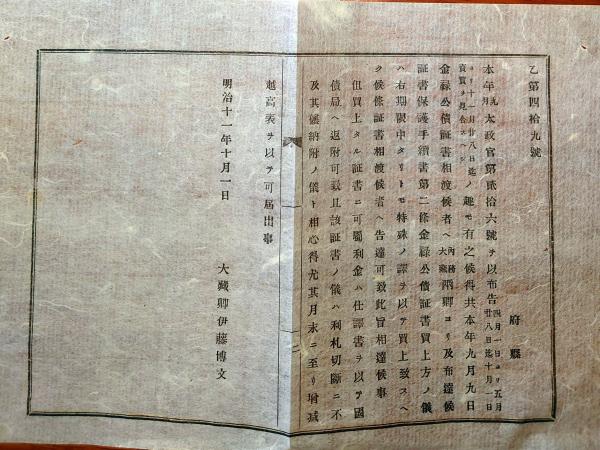 乙第四拾九號
府縣
本年九月太政官第貳拾六號ヲ以布告四月一日ヨリ五月廿八日迄十月一日
ヨリ十一月廿八日迄ノ趣モ有之候得共本年九月九日
金祿公債証書相渡候者ヘ內務大藏兩卿ヨリ及布達候
証書保護手續書第二條金祿公債証書買上方ノ儀
ハ右期限中タリトモ特殊ノ譯ヲ以テ買上致スヘ
ク候條証書相渡候者ヘ告達可致此旨相達候事
但買上タル証書ニ可屬利金ハ仕譯書ヲ以テ國
債局ヘ返附可致且該証書ノ儀ハ利札切斷ニ不
及其儘納附ノ儀ト相心得尤其月末ニ至リ增減
越高表ヲ以テ可屆出事
明治十一年十月一日
大藏卿伊藤博文